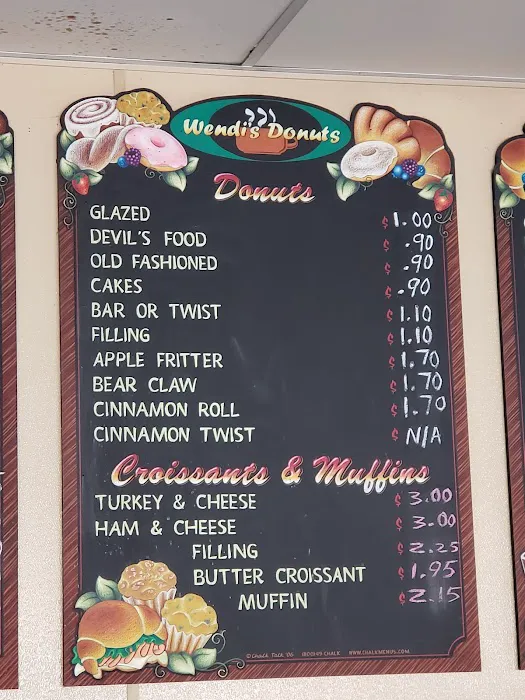 Wendi's Donuts
Donuts
GLAZED $1.00
DEVIL'S FOOD $.90
OLD FASHIONED $.90
CAKES $.90
BAR OR TWIST $1.10
FILLING $1.10
APPLE FRITTER $1.70
BEAR CLAW $1.70
CINNAMON ROLL $1.70
CINNAMON TWIST $N/A
Croissants & Muffins
TURKEY & CHEESE $3.00
HAM & CHEESE $3.00
FILLING $2.25
BUTTER CROISSANT $1.95
MUFFIN $2.15
© Chalk Talk '06 1800149 CHALK WWW.CHALKMENUS.COM